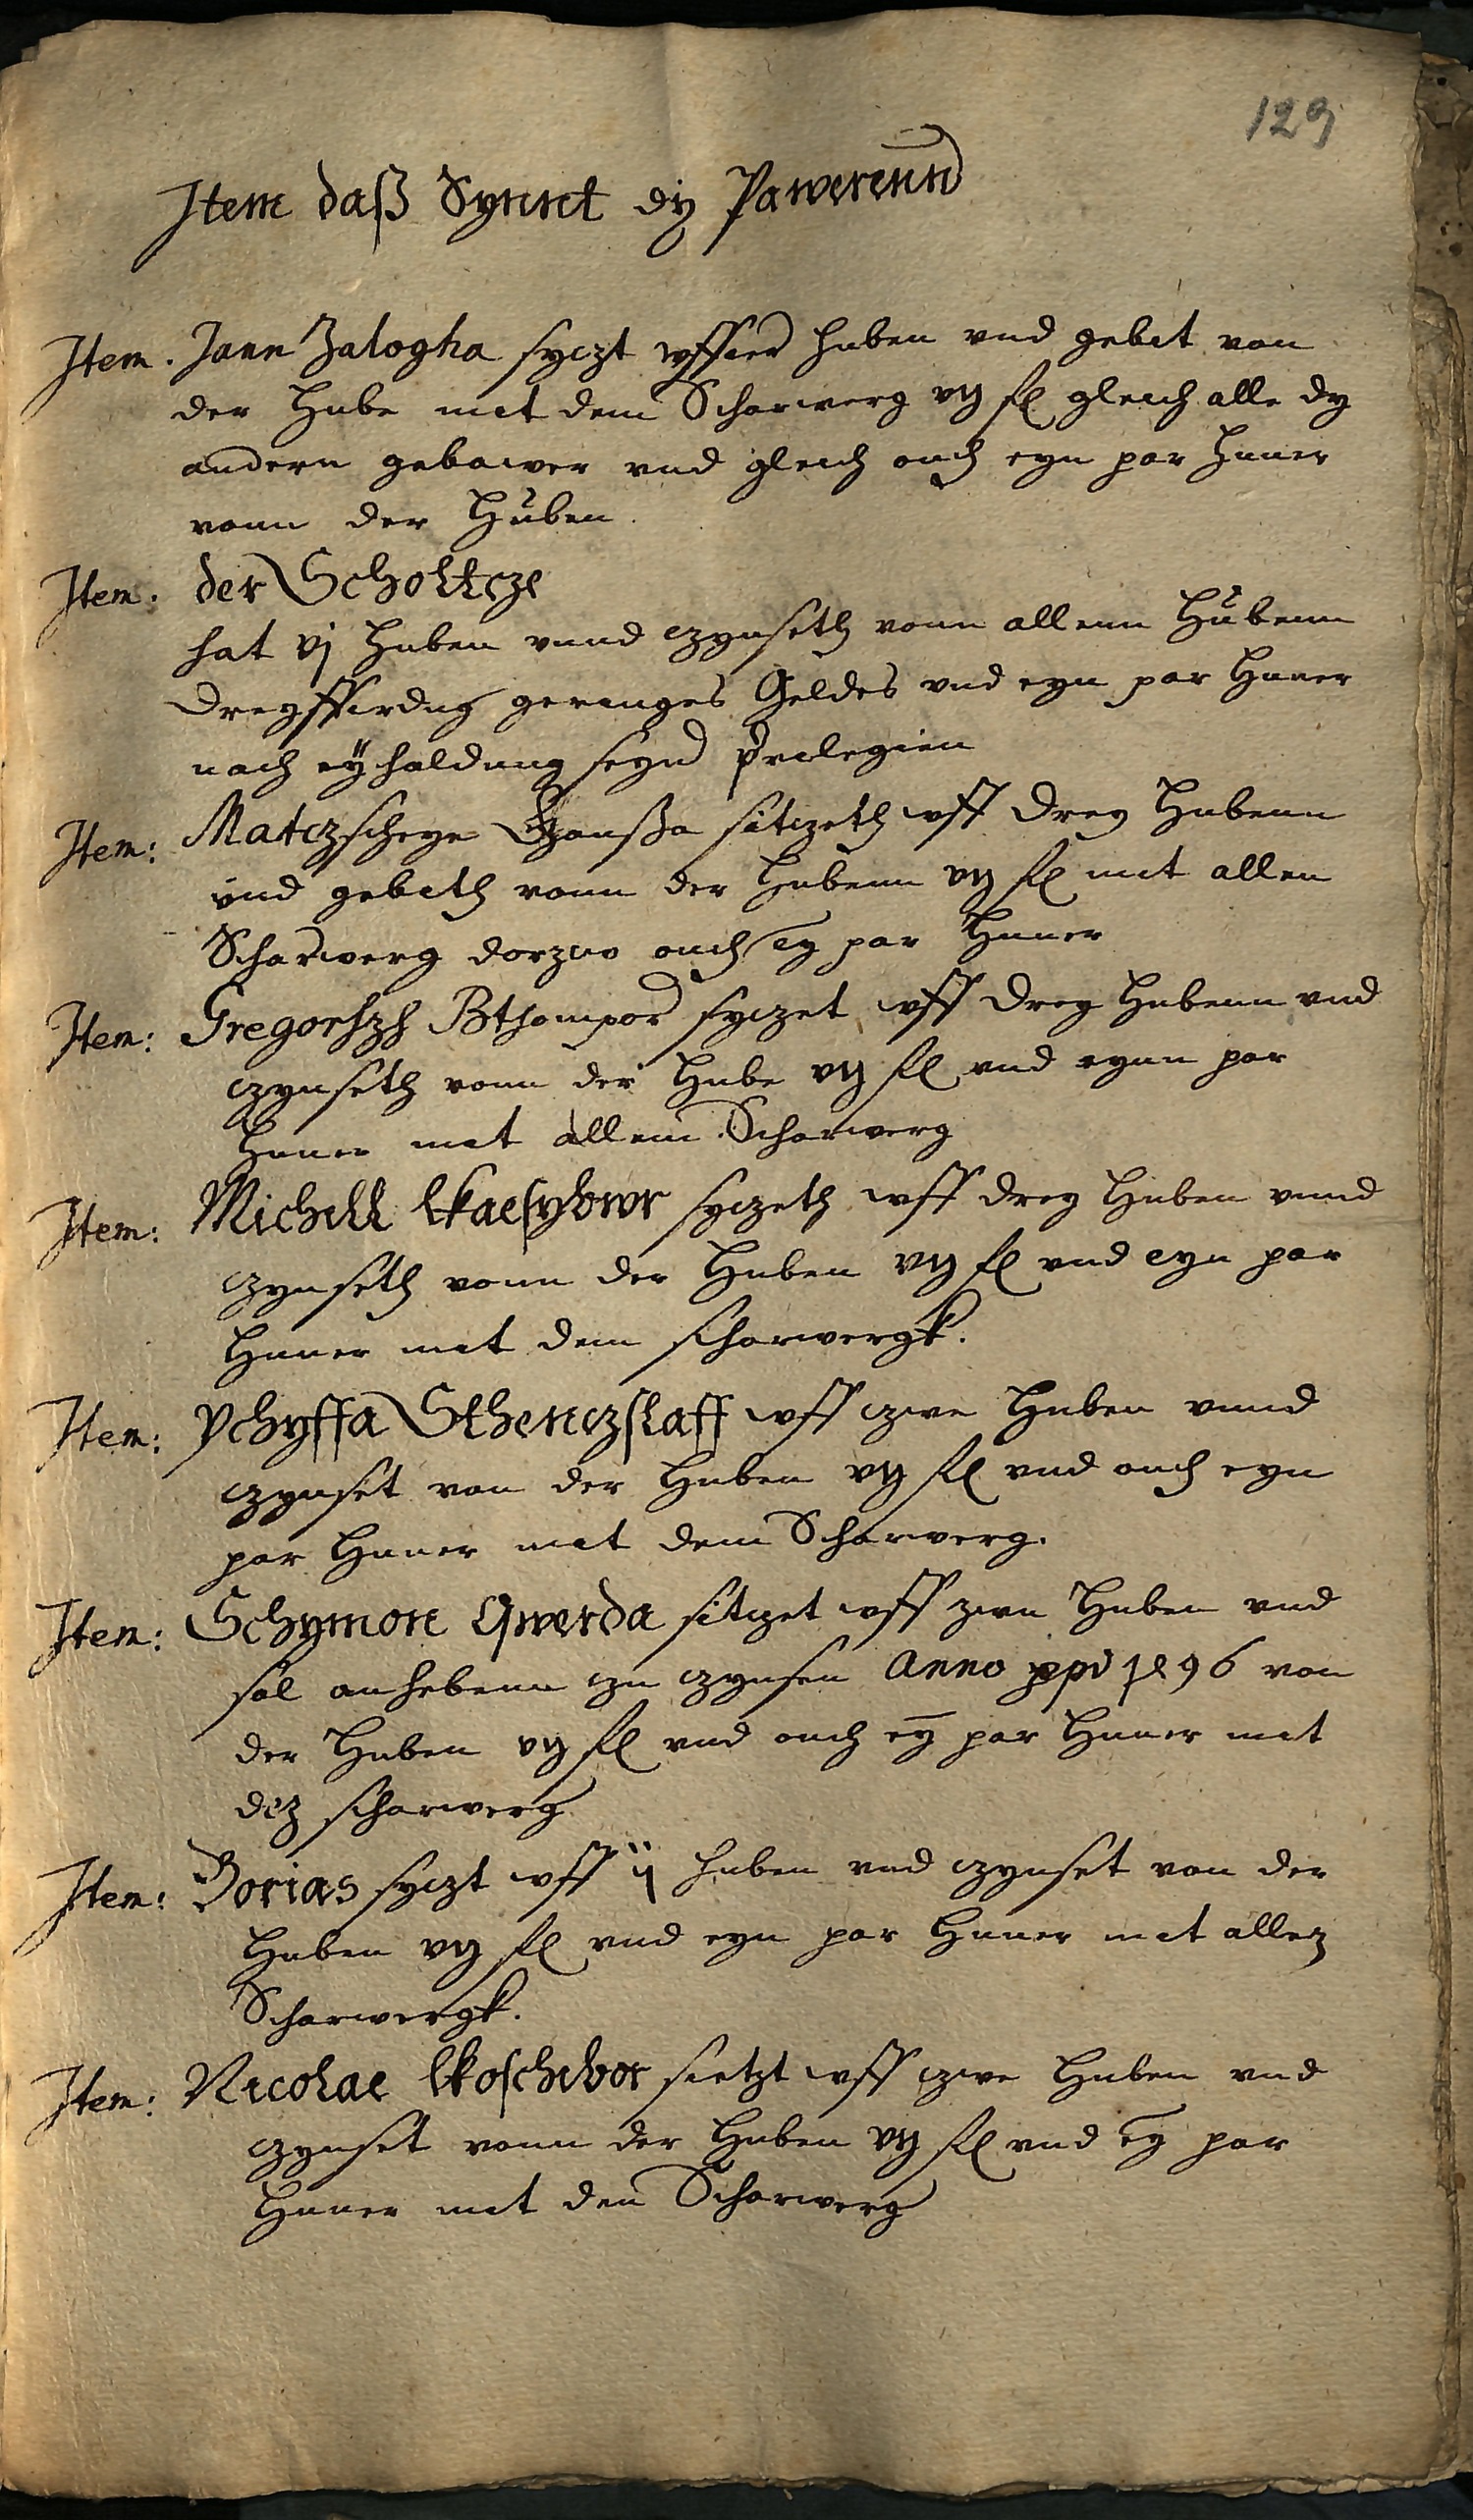 129
Item daß Synnt dy Pawerenn
Item. Jann Zalogha syczt vff vier huben vnd gebit von
der Hube mit dem Scharwerg vij fl gleich alle dy
andern gebawer vnd gleich ouch eyn par Huner
vonn der Huben
Item: der Scholtcze
hat vj Huben vnnd czynseth vonn allenn Hubenn
Dreyffirdug geringes Geldes vnd eyn par Huner
nach eyhaldung seynd prilegien
Item: Matczscheye Ganßa sitczeth vff Drey Hubenn
vnd gebith vonn der Hubenn vij fl mit allen
Scharwerg dorzuo ouch ey par Huner
Item: Gregorhzh Bthampor syczet vff Drey Hubenn vnd
czynseth vonn der Hube vij fl vnd eynn par
Huner mit allem Scharwerg
Item: Michell syczeth vff drey Huben vnnd
czynseth vonn der Huben vij fl vnd eyn par
Huner mit dem scharwergk.
Item: Ychyffa Sthenczslaff vff czwe Huben vnnd
czynset von der Huben vij fl vnd ouch eyn
par Huner mit dem Scharwerg.
Item: Schymon Qwerda sitczet vff zwu Huben vnd
sal anhebenn czu czynsen Anno 96 von
der Huben vij fl vnd ouch ey par Huner mit
dez scharwerg
Item: Borias syczt vff ij huben vnd czynset von der
Huben vij fl vnd eyn par Huner mit allez
Scharwergk.
Item: Nicolae sietzt vff czwe Huben vnd
czynset vonn der Huben vij fl vnd ey par
Huner mit den Scharwerg